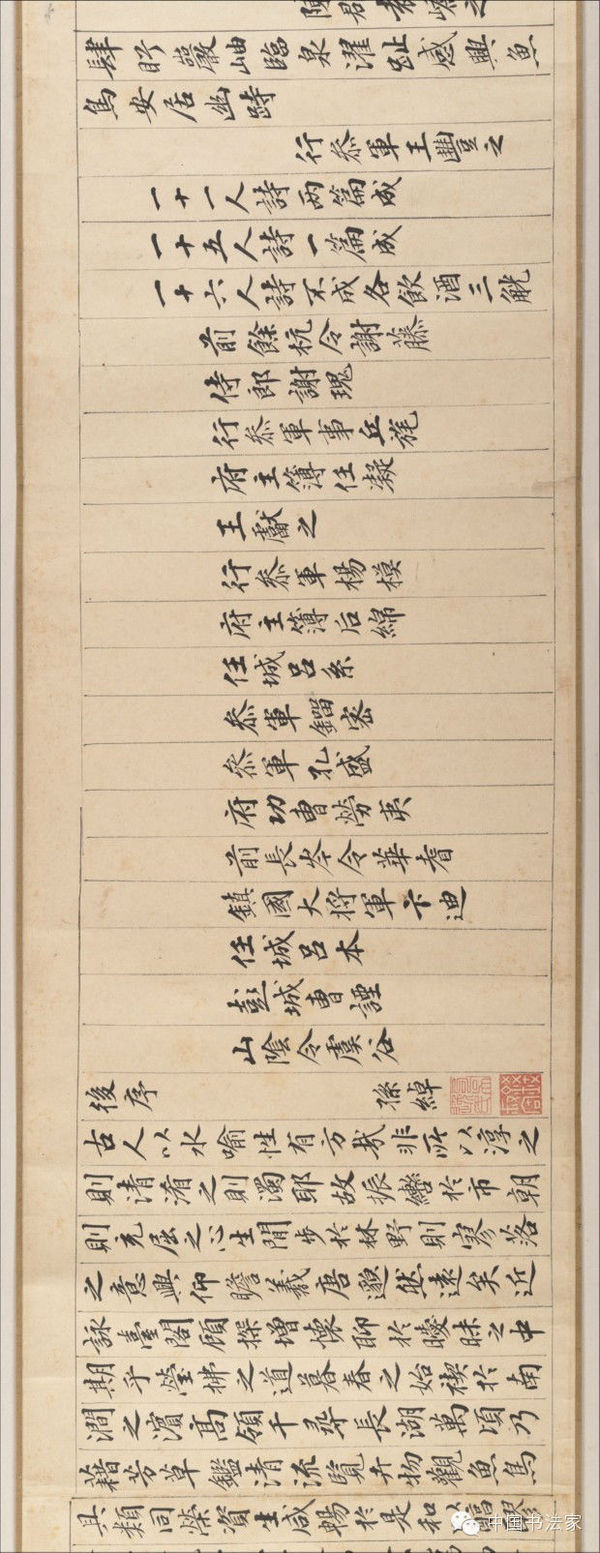 肆盻巖岫臨泉濯趾感興魚
鳥安居幽跱
行參軍王豐之
一十一人詩兩篇成
一十五人詩一篇成
一十六人詩不成各飲酒三觥
前餘杭令謝藤
侍郎謝瑰
行參軍事丘旄
府主簿任凝
王獻之
行參軍楊模
府主簿后綿
任城呂系
參軍鎦密
參軍孔盛
府功曹勞夷
前長岑令華耆
鎮國大將軍卞迪
任城呂本
彭城曹諲
山陰令虞谷
後序 孫綽
古人以水喻性有方哉非所以淳之
則清淆之則濁耶故振轡於市朝
則充屈之心生閒步於林野則寥落
之意興仰瞻羲唐邈然遠矣近
詠臺閣顧探增懷聊於曖昧之中
期乎瑩拂之道暮春之始禊於南
澗之濱高領千尋長湖萬頃乃
藉芳草鑑清流覽卉物觀魚鳥
具類同榮資生咸暢於是和以醇醪
中国书法家